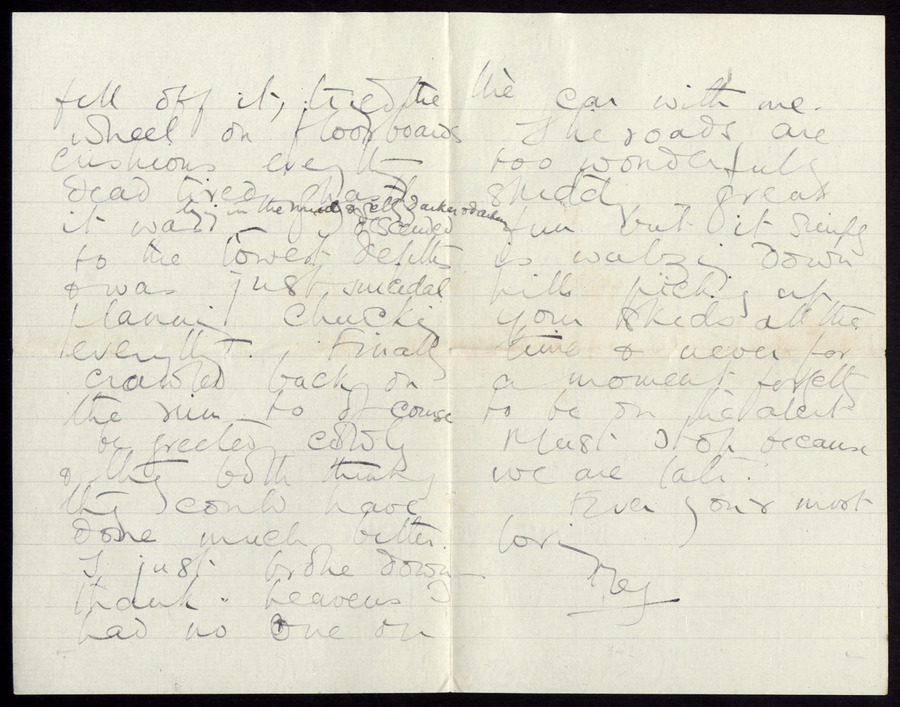 fell off it, tried the
wheel on floorboards
cushions everyth
dead tired,
in the mud & getting darker & darker
it was descended
to the lowest depths
& was just suicidal
planning chucking
everything. Finally
crawled back on
the rim to of course
be greeted coldly
& they both think
they could have
done much better.
I just broke down
thank heavens I
had no one on
the car with me.
The roads are
too wonderfully
skiddy, great
fun but it simply
is waltzing down
hills picking up
your skids all the
time & never for
a moment forgetting
to be on the alert
Must stop because
we are late.
Ever your most
loving